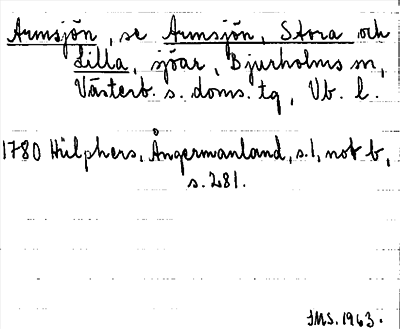 Armsjön, se Armsjön, Stora och
Lilla, sjöar, Bjurholms sn,
Västerb. s. doms. tg, Vb. l.
1780 Hülphers, Ångermanland, s. 1, not b,
s. 281.
IMS. 1963.